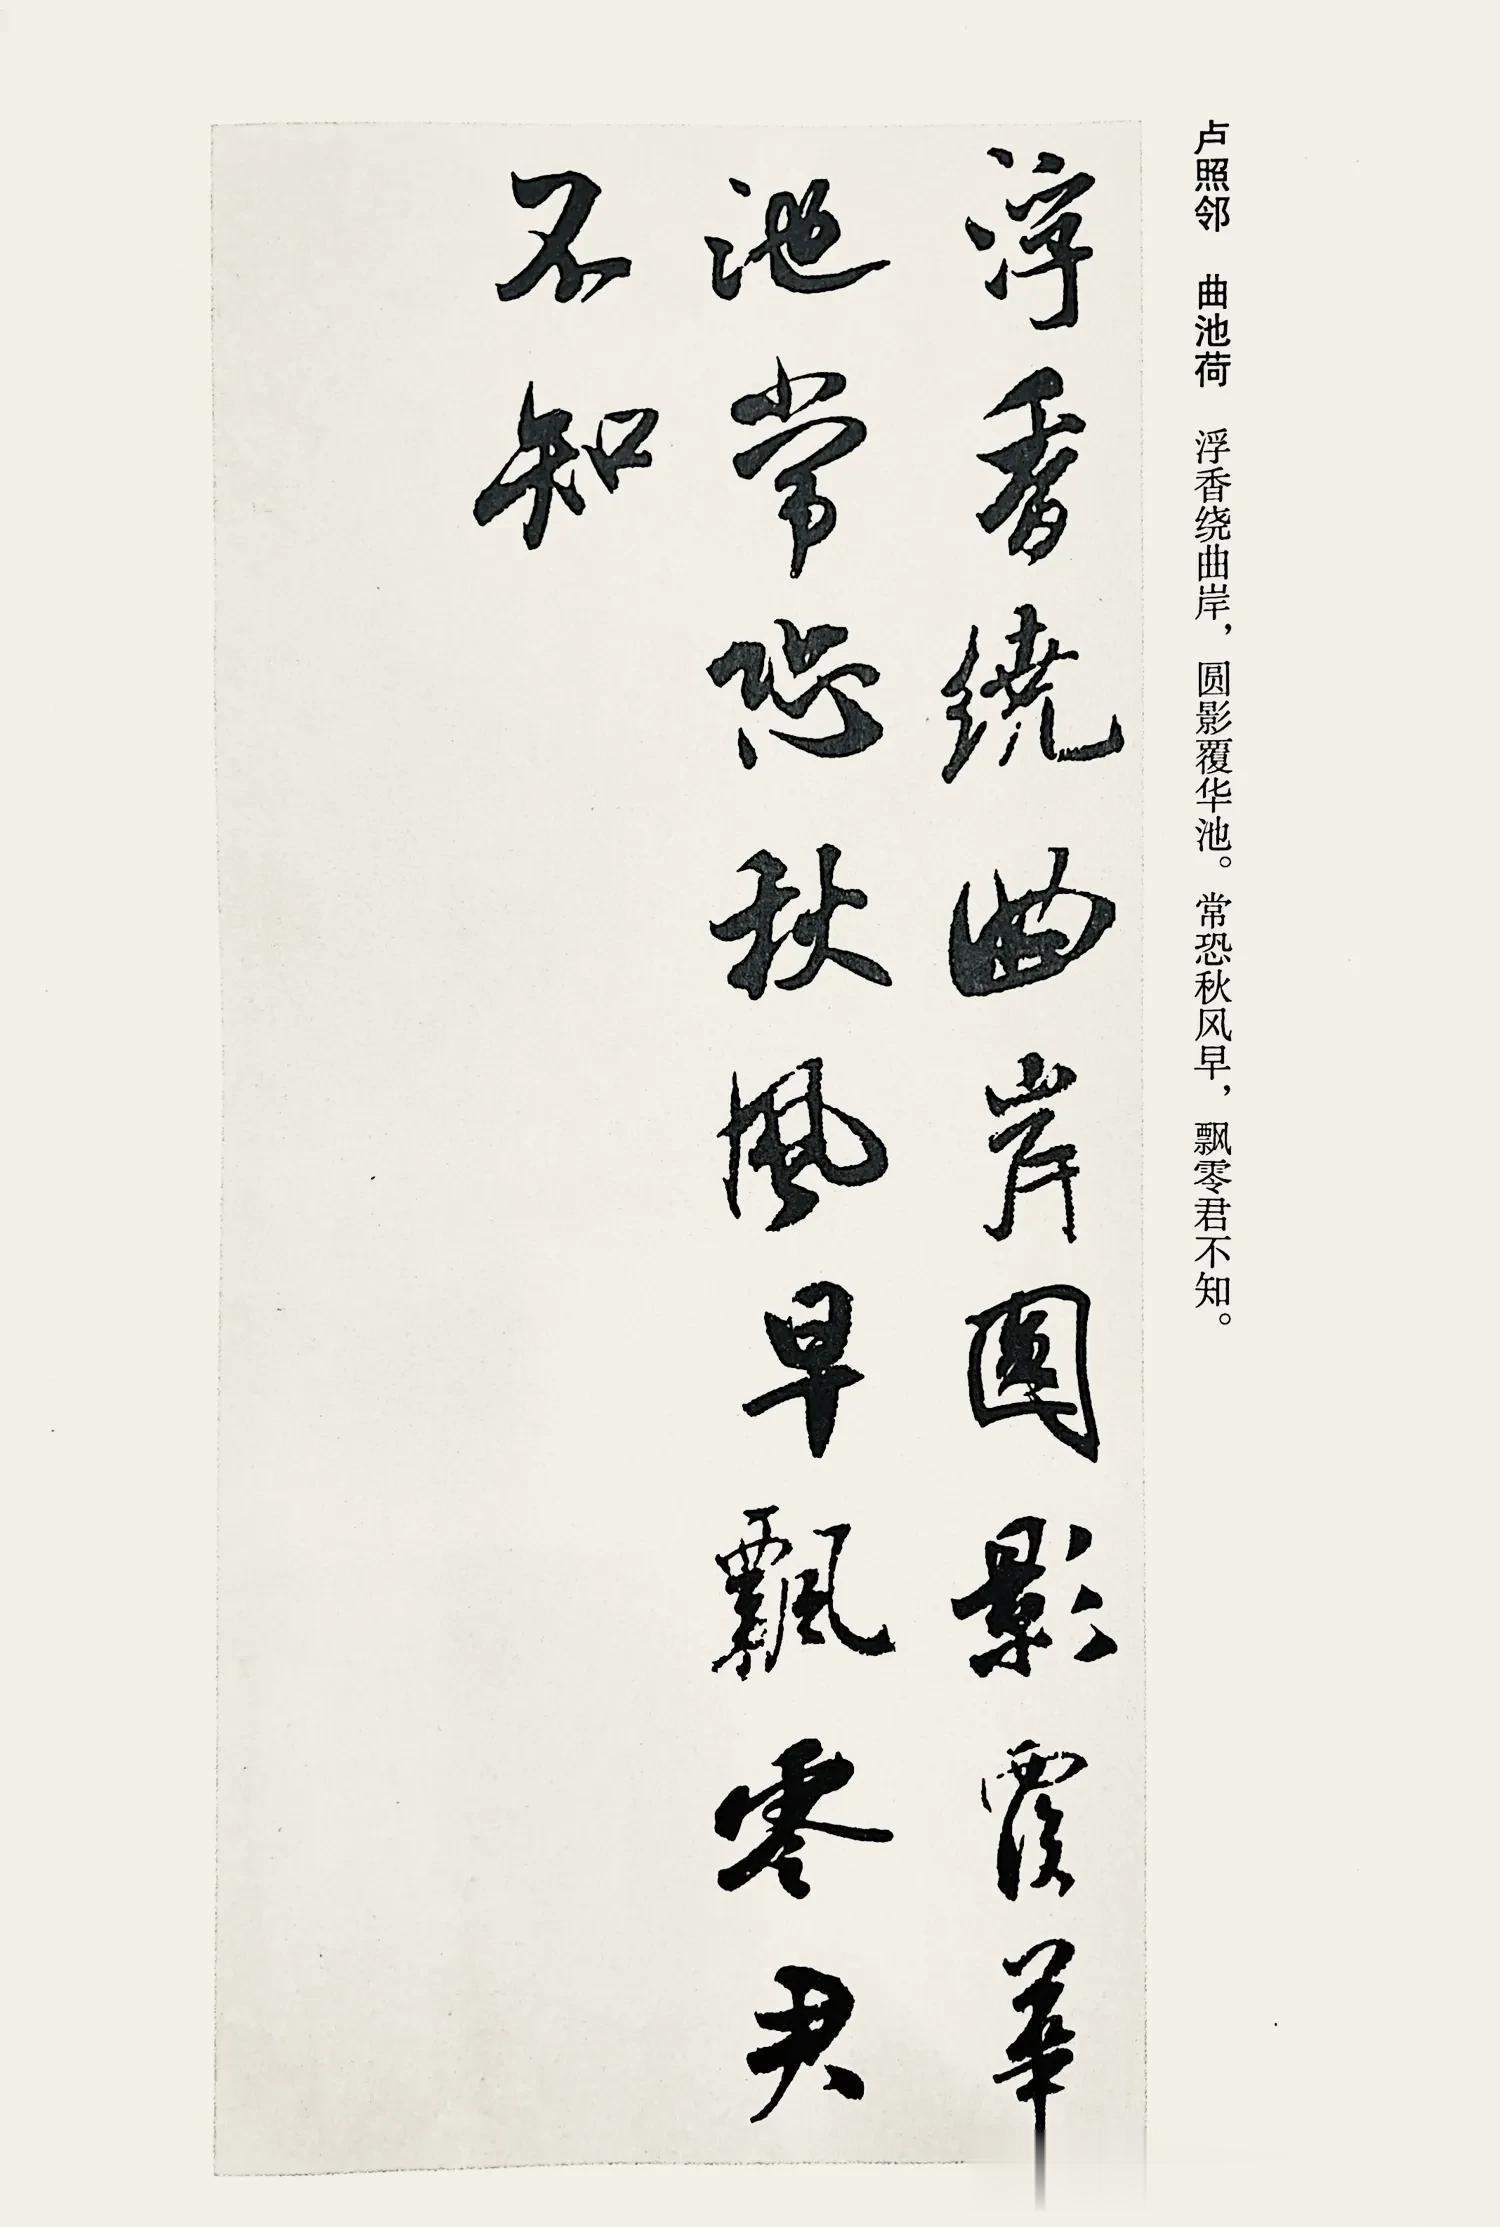 卢照邻　曲池荷　浮香绕曲岸，圆影覆华池。常恐秋风早，飘零君不知。
浮香繞曲岸圓影覆華
池常恐秋風早飄零君
不知